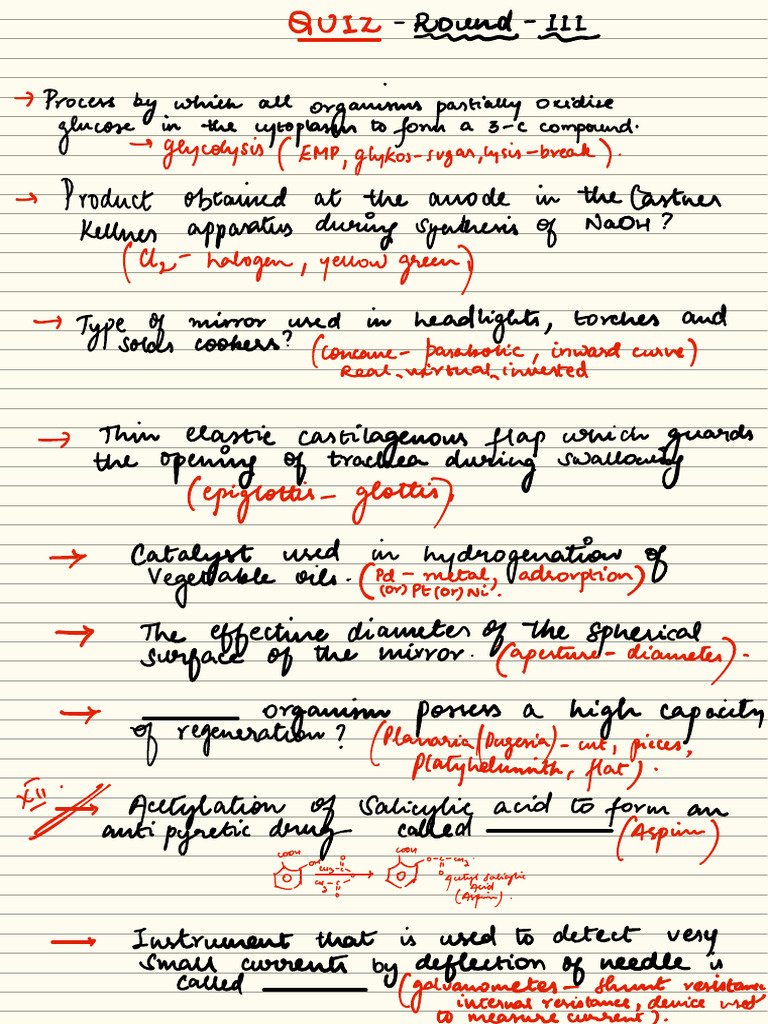 QUIZ - Round - III
→ Process by which all organisms partially oxidise
glucose in the cytoplasm to form a 3-C compound.
→ glycolysis (EMP, glykos-sugar, lysis-break).
→ Product obtained at the anode in the Castner
Kellner apparatus during synthesis of NaOH?
(Cl2 - halogen, yellow green)
→ Type of mirror used in headlights, torches and
solar cookers? (concave - parabolic, inward curve)
Real, virtual, inverted
→ Thin elastic cartilagenous flap which guards
the opening of trachea during swallowing
(epiglottis - glottis)
→ Catalyst used in hydrogenation of
Vegetable oils. (Pd - metal, adsorption)
(or) Pt (or) Ni.
→ The effective diameter of the spherical
surface of the mirror. (aperture - diameter).
→ ______ organism possess a high capacity
of regeneration? (Planaria/Dugesia) - cut, pieces,
Platyhelminth, flat).
XII
→ Acetylation of Salicylic acid to form an
anti pyretic drug called ______ (Aspirin)
COOH OH CH3-C=O O CH3-C=O → COOH O-C-CH3 O
Acetyl Salicylic
Acid
(Aspirin).
→ Instrument that is used to detect very
small currents by deflection of needle is
called ______ (galvanometer - shunt resistance
internal resistance, device used
to measure current).